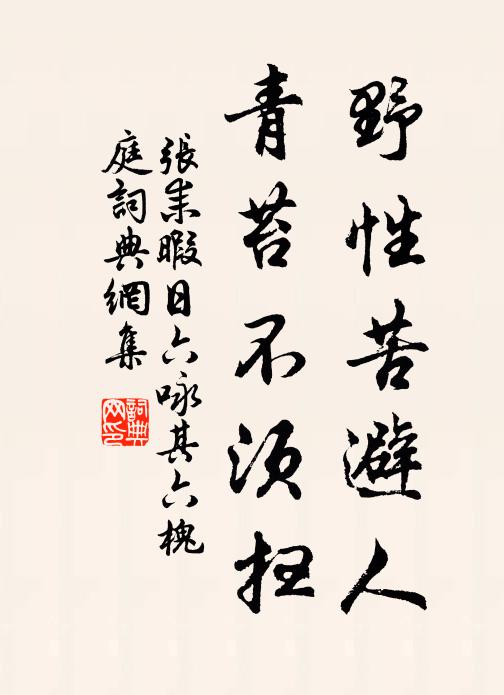 野性苦避人
青苔不須扫
張耒暇日六咏其六槐
庭詞典網集
詞典
网印